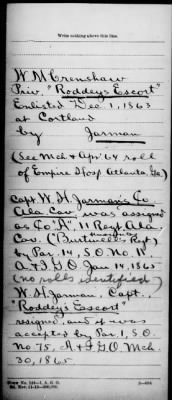 Write nothing above this line.
W M Crenshaw
Priv. "Roddey's Escort"
Enlisted Dec 1, 1863
at Cortland
by Jarman
(See Mch & Apr '64 roll
of Empire Hosp Atlanta Ga)
Capt. W. H. Jarman's Co.
Ala Cav. was assigned
as Co "A" 11 Regt Ala
Cav. (Burtwell's Regt)
by Par. 14, S.O. No. 11
A & I G O Jan 14, 1865
(no rolls identified)
W. H. Jarman, Capt.,
"Roddey's Escort"
resigned, and it was
accepted by Par 1, S.O.
No 75, A & I G O, Mch.
30, 1865